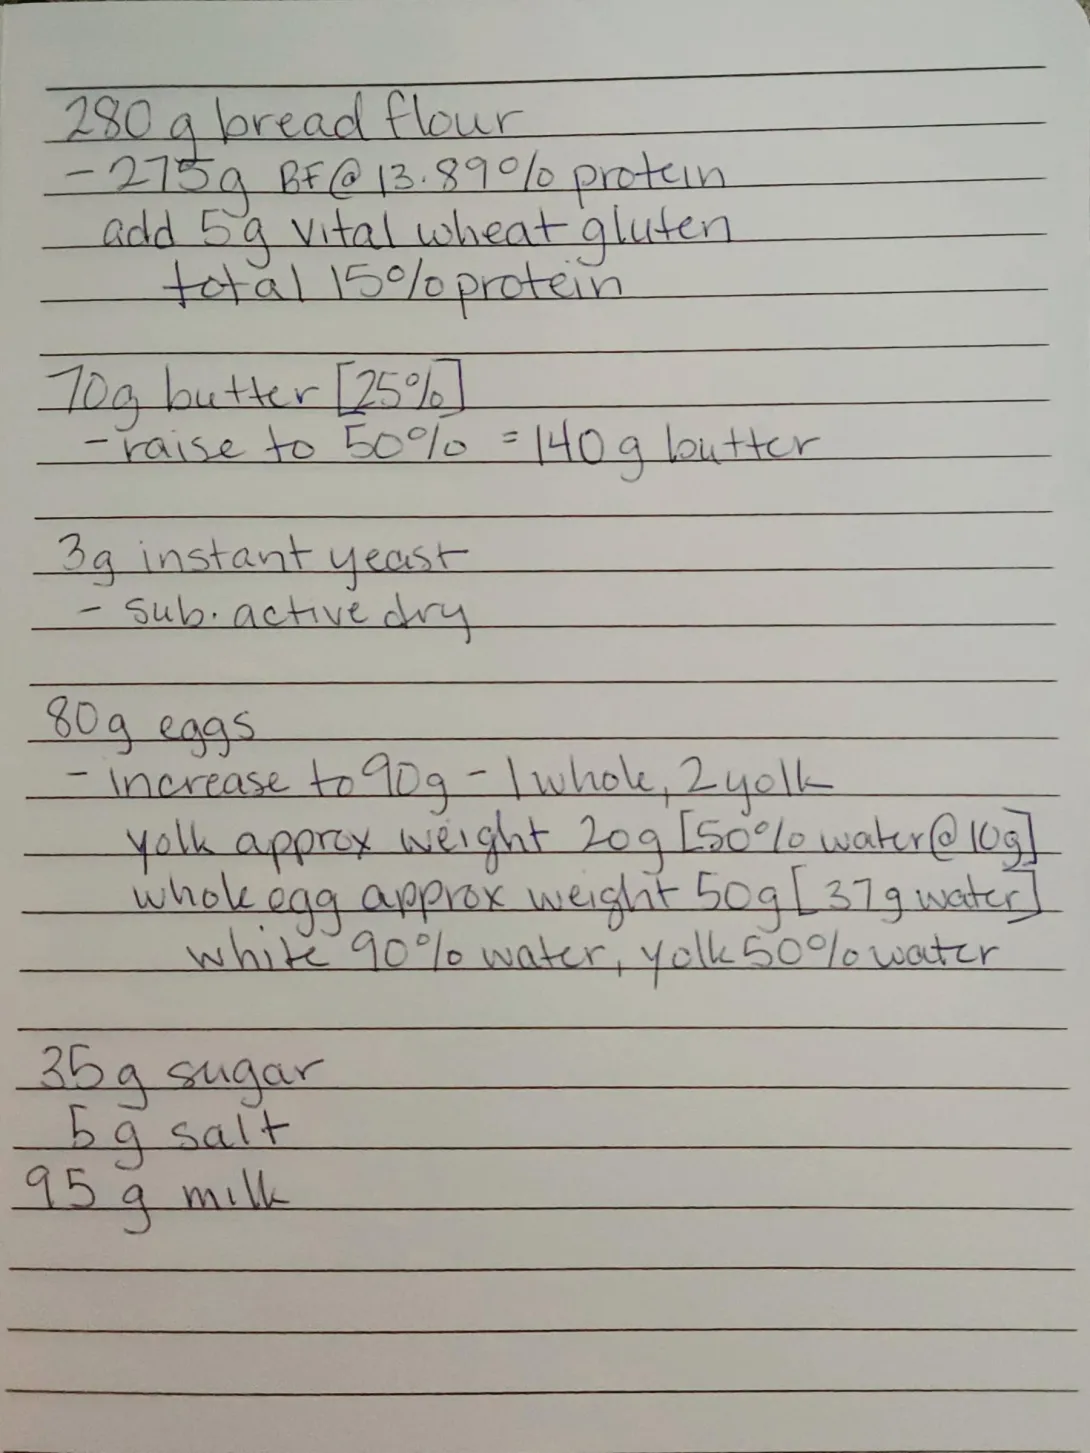 280 g bread flour
- 275g BF @ 13.89% protein
add 5g vital wheat gluten
total 15% protein
70g butter [25%]
- raise to 50% = 140 g butter
3g instant yeast
- sub. active dry
80g eggs
- increase to 90g - 1 whole, 2 yolk
yolk approx weight 20g [50% water @ 10g]
whole egg approx weight 50g [37g water]
white 90% water, yolk 50% water
35g sugar
5g salt
95 g milk